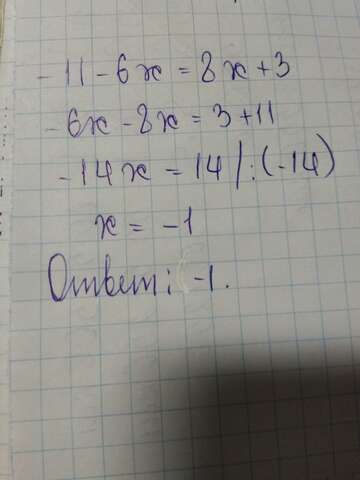 -11-6x=8x+3
-6x-8x=3+11
-14x=14|:(-14)
x=-1
Ответ: -1.